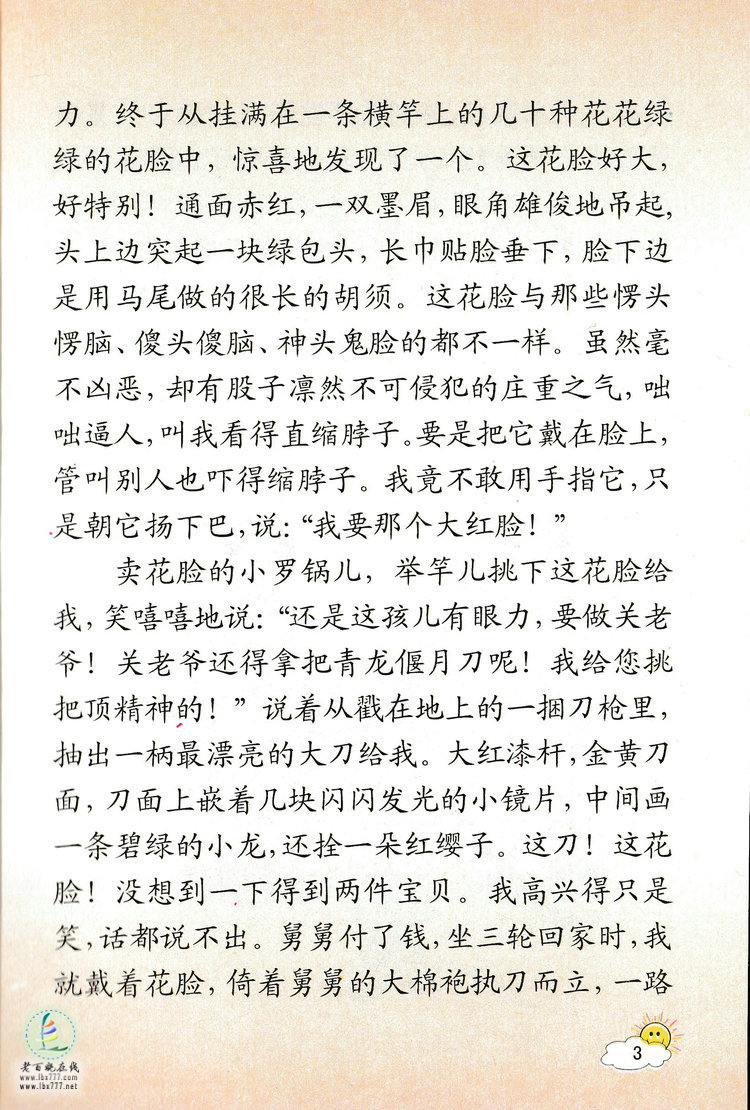 力。终于从挂满在一条横竿上的几十种花花绿
绿的花脸中，惊喜地发现了一个。这花脸好大，
好特别！通面赤红，一双墨眉，眼角雄俊地吊起，
头上边突起一块绿包头，长巾贴脸垂下，脸下边
是用马尾做的很长的胡须。这花脸与那些愣头
愣脑、傻头傻脑、神头鬼脸的都不一样。虽然毫
不凶恶，却有股子凛然不可侵犯的庄重之气，咄
咄逼人，叫我看得直缩脖子。要是把它戴在脸上，
管叫别人也吓得缩脖子。我竟不敢用手指它，只
是朝它扬下巴，说：“我要那个大红脸！”
卖花脸的小罗锅儿，举竿儿挑下这花脸给
我，笑嘻嘻地说：“还是这孩儿有眼力，要做关老
爷！关老爷还得拿把青龙偃月刀呢！我给您挑
把顶精神的！”说着从戳在地上的一捆刀枪里，
抽出一柄最漂亮的大刀给我。大红漆杆，金黄刀
面，刀面上嵌着几块闪闪发光的小镜片，中间画
一条碧绿的小龙，还拴一朵红缨子。这刀！这花
脸！没想到一下得到两件宝贝。我高兴得只是
笑，话都说不出。舅舅付了钱，坐三轮回家时，我
就戴着花脸，倚着舅舅的大棉袍执刀而立，一路
老百晓在线
www.lbx777.com
www.lbx777.net
3